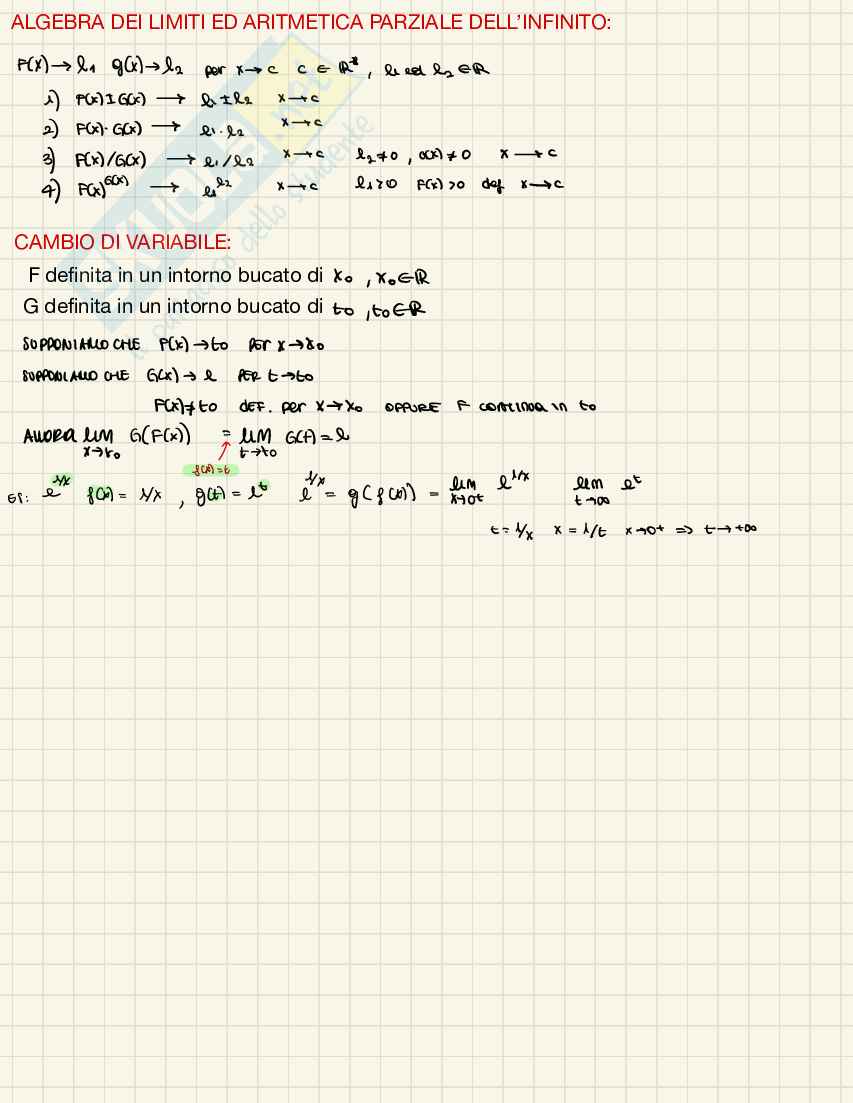 ALGEBRA DEI LIMITI ED ARITMETICA PARZIALE DELL'INFINITO:
F(x)→l₁ g(x)→l₂ per x→c c ∈ ℝ*, l₁ ed l₂ ∈ ℝ
1) F(x) ± G(x) → l₁ ± l₂ x→c
2) F(x) · G(x) → l₁ · l₂ x→c
3) F(x)/G(x) → l₁/l₂ x→c l₂≠0, G(x)≠0 x→c
4) F(x)^G(x) → l₁^l₂ x→c l₁>0 F(x)>0 def x→c
CAMBIO DI VARIABILE:
F definita in un intorno bucato di x₀, x₀∈ℝ
G definita in un intorno bucato di t₀, t₀∈ℝ
SUPPONIAMO CHE F(x)→t₀ PER x→x₀
SUPPONIAMO CHE G(x)→l PER t→t₀
F(x)≠t₀ DEF. per x→x₀ OPPURE F CONTINUA IN t₀
ALLORA lim x→x₀ G(F(x)) = lim t→t₀ G(t) = l
f(x)=t
ES: e^1/x f(x) = 1/x, g(t) = e^t e^1/x = g(f(x)) = lim x→0⁺ e^1/x lim t→∞ e^t
t = 1/x x = 1/t x→0⁺ ⇒ t→+∞
SKUOLA.net
il paradiso dello studente